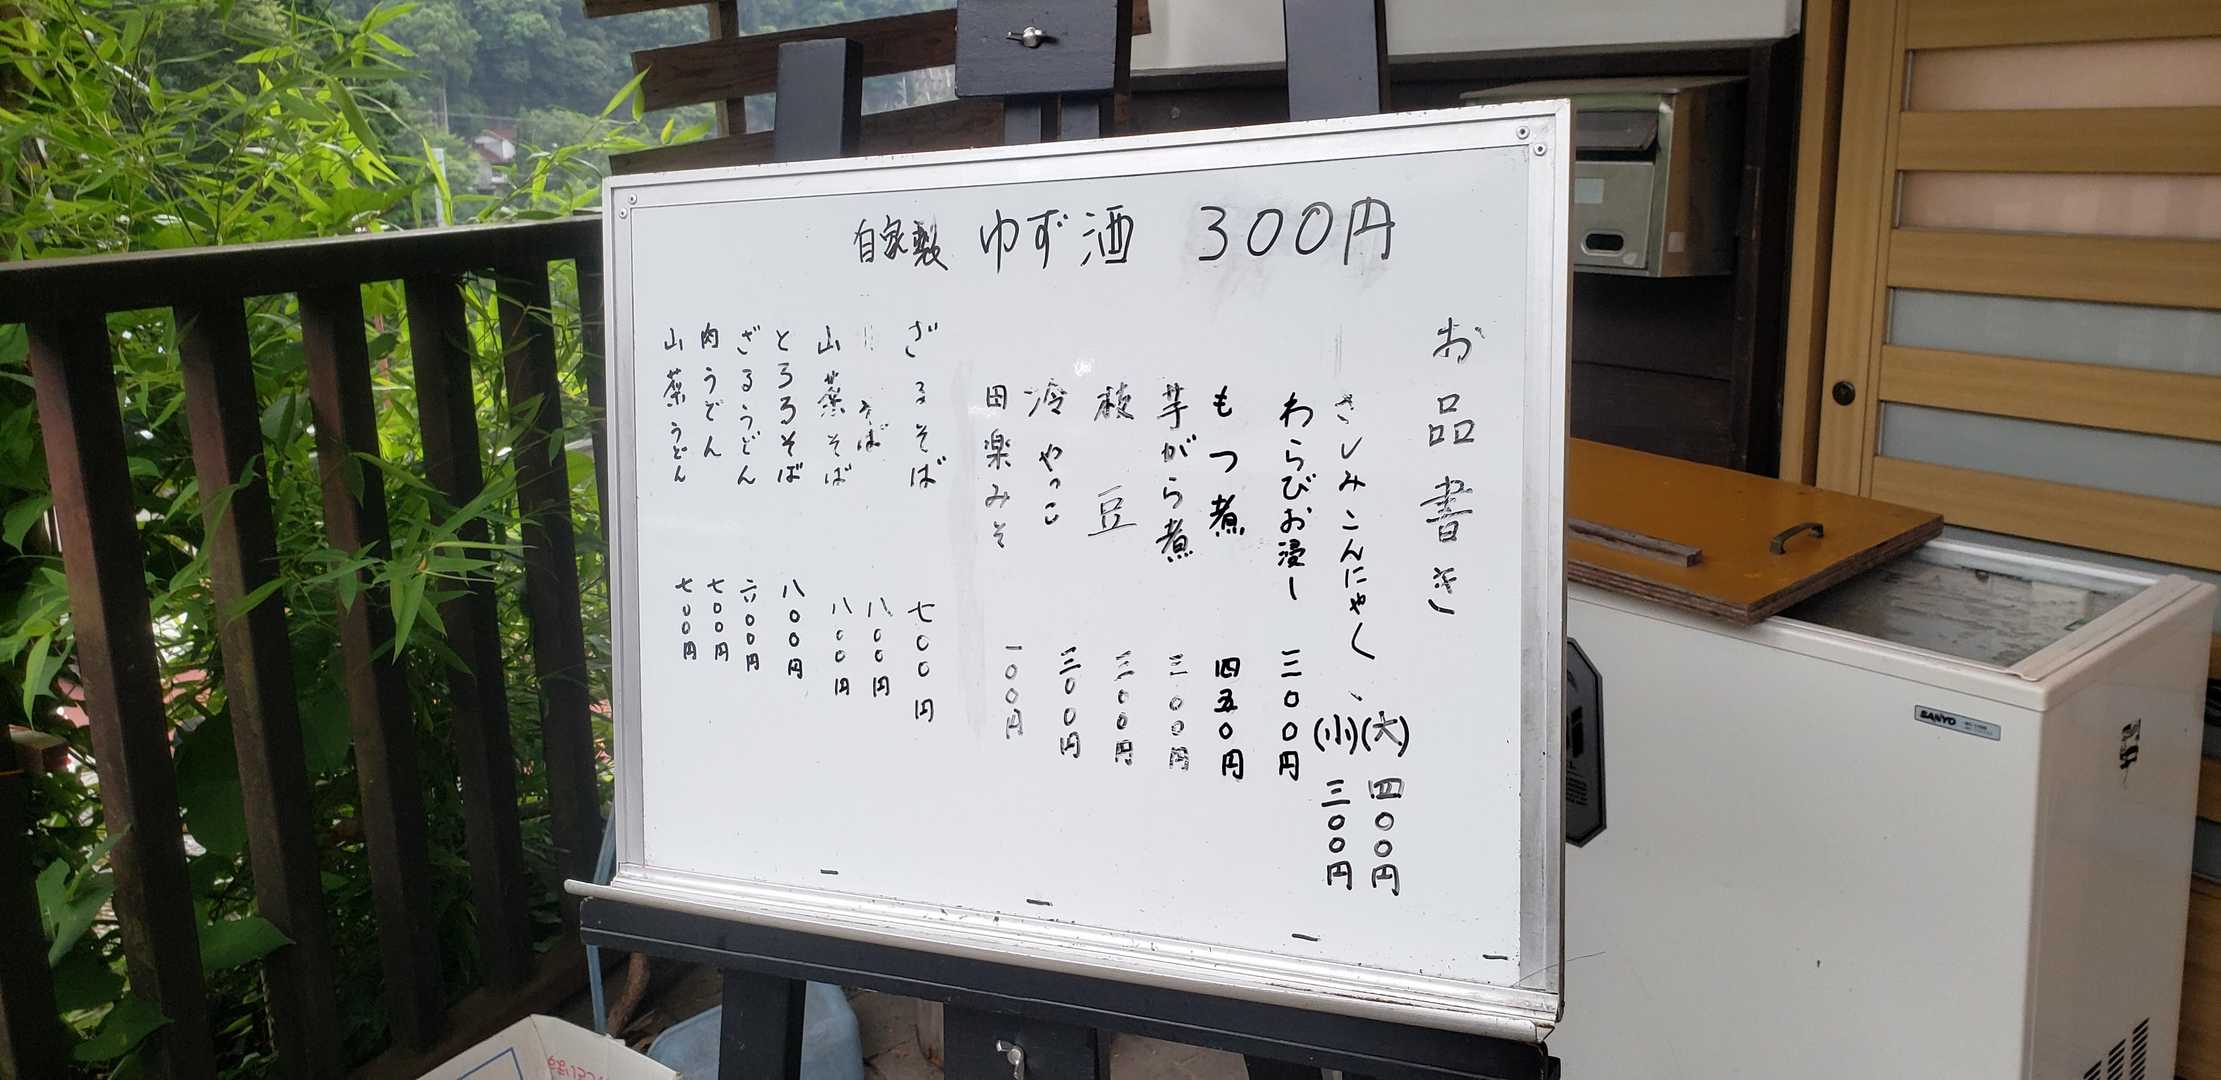 自家製 ゆず酒 300円
お品書き
さしみこんにゃく (大) 四〇〇円
(小) 三〇〇円
わらびお浸し 三〇〇円
もつ煮 四五〇円
芋がら煮 三〇〇円
枝豆 三〇〇円
冷やっこ 三〇〇円
田楽みそ 一〇〇円
ざるそば 七〇〇円
そば 八〇〇円
山菜そば 八〇〇円
とろろそば 八〇〇円
ざるうどん 六〇〇円
肉うどん 七〇〇円
山菜うどん 七〇〇円
SANYO